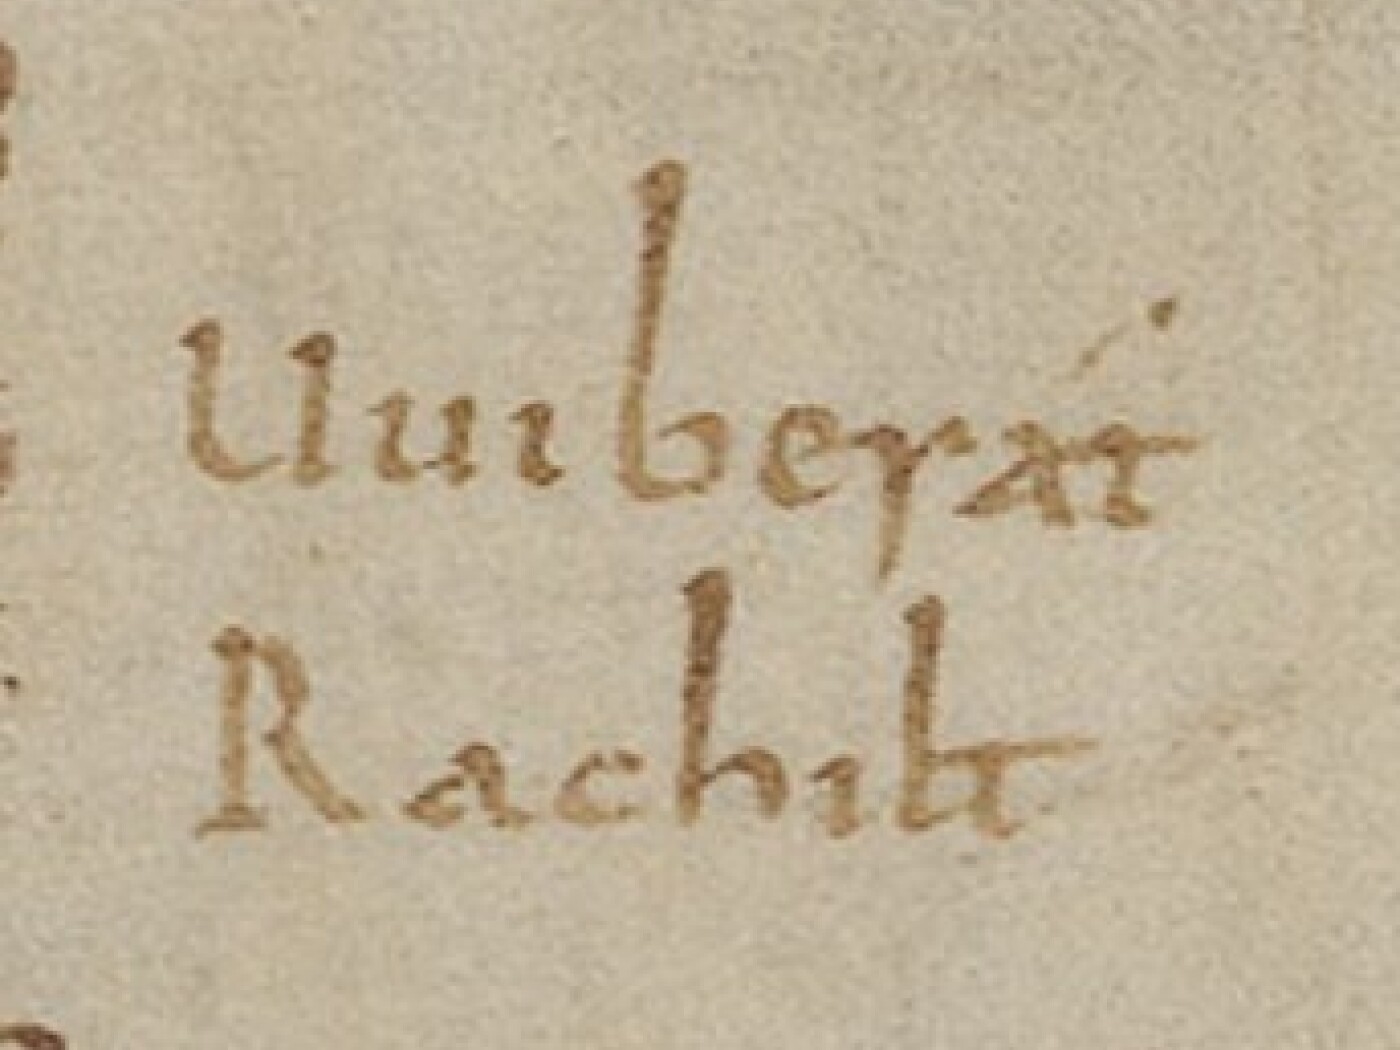 Uuiberát
Rachilt